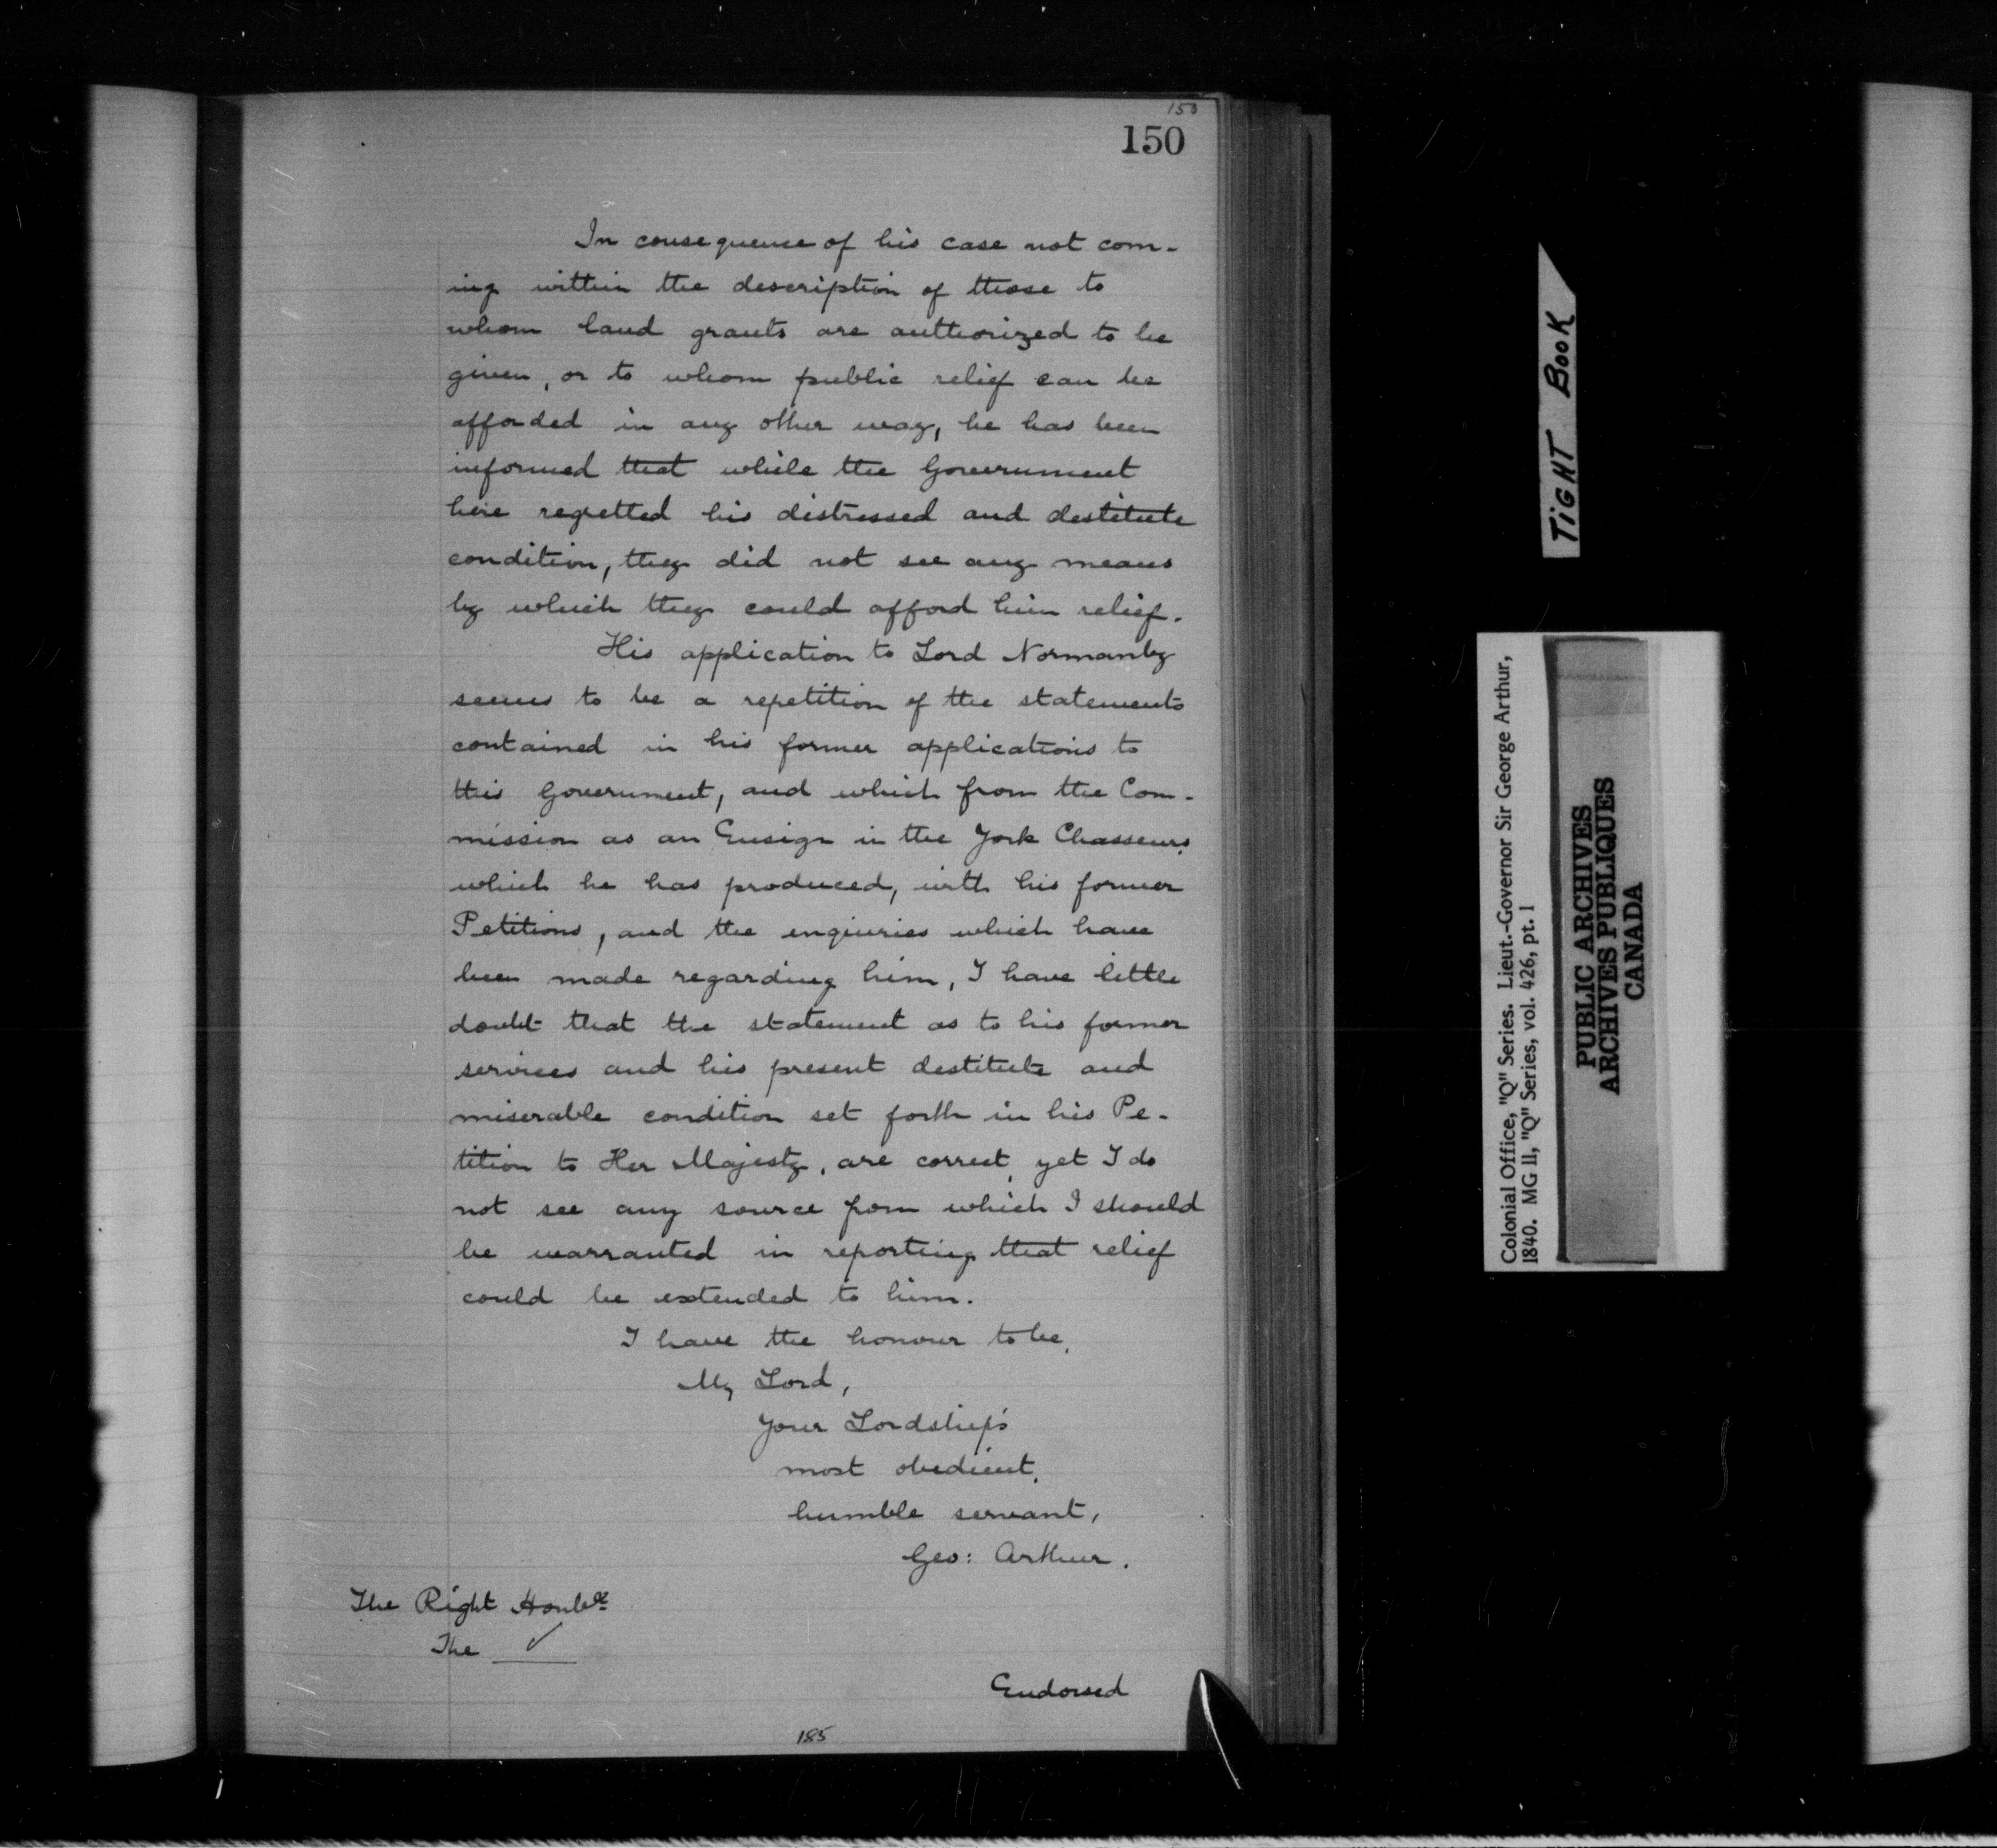 153
150
In consequence of his case not com-
ing within the description of those to
whom land grants are authorized to be
given, or to whom public relief can be
afforded in any other way, he has been
informed that while the Government
here regretted his distressed and destitute
condition, they did not see any means
by which they could afford him relief.
His application to Lord Normanby
seems to be a repetition of the statements
contained in his former applications to
this Government, and which from the Com-
mission as an Ensign in the York Chasseurs,
which he has produced, with his former
Petitions, and the enquiries which have
been made regarding him, I have little
doubt that the statement as to his former
services and his present destitute and
miserable condition set forth in his Pe-
tition to Her Majesty, are correct, yet I do
not see any source from which I should
be warranted in reporting that relief
could be extended to him.
I have the honour to be,
My Lord,
Your Lordship's
most obedient,
humble servant,
Geo: Arthur.
The Right Honble
The ✓
Endorsed
185
TIGHT BOOK
Colonial Office, "Q" Series. Lieut.-Governor Sir George Arthur,
1840. MG 11, "Q" Series, vol. 426, pt. 1
PUBLIC ARCHIVES
ARCHIVES PUBLIQUES
CANADA